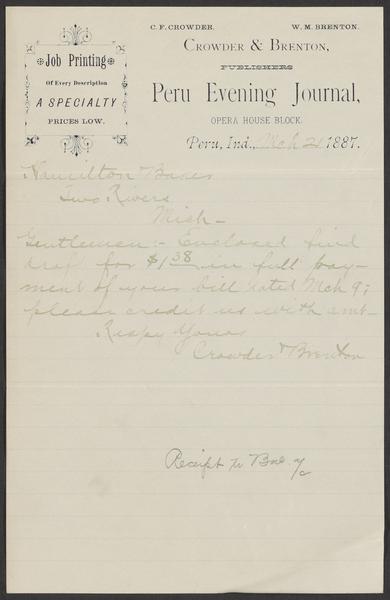 C. F. CROWDER. W. M. BRENTON.
CROWDER & BRENTON,
PUBLISHERS
Peru Evening Journal,
OPERA HOUSE BLOCK.
Job Printing
Of Every Description
A SPECIALTY
PRICES LOW.
Peru, Ind., Mch 21 1887.
Hamilton
Two Rivers
Mich-
Gentlemen:- Enclosed find
draft for $1.38 in full pay-
ment of your bill dated Mch 9;
please credit us with amt-
Respy Yours
Crowder & Brenton
Receipt to Bal a/c